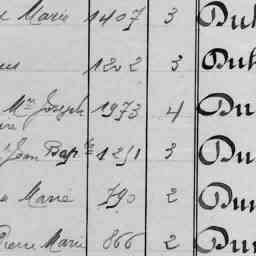 Marie 1407 3 Du
1202 3 Du
Mce Joseph 1973 4 Du
Jean Bapte 1251 3 Du
Marie 790 2 Du
Pierre Marie 866 2 Du